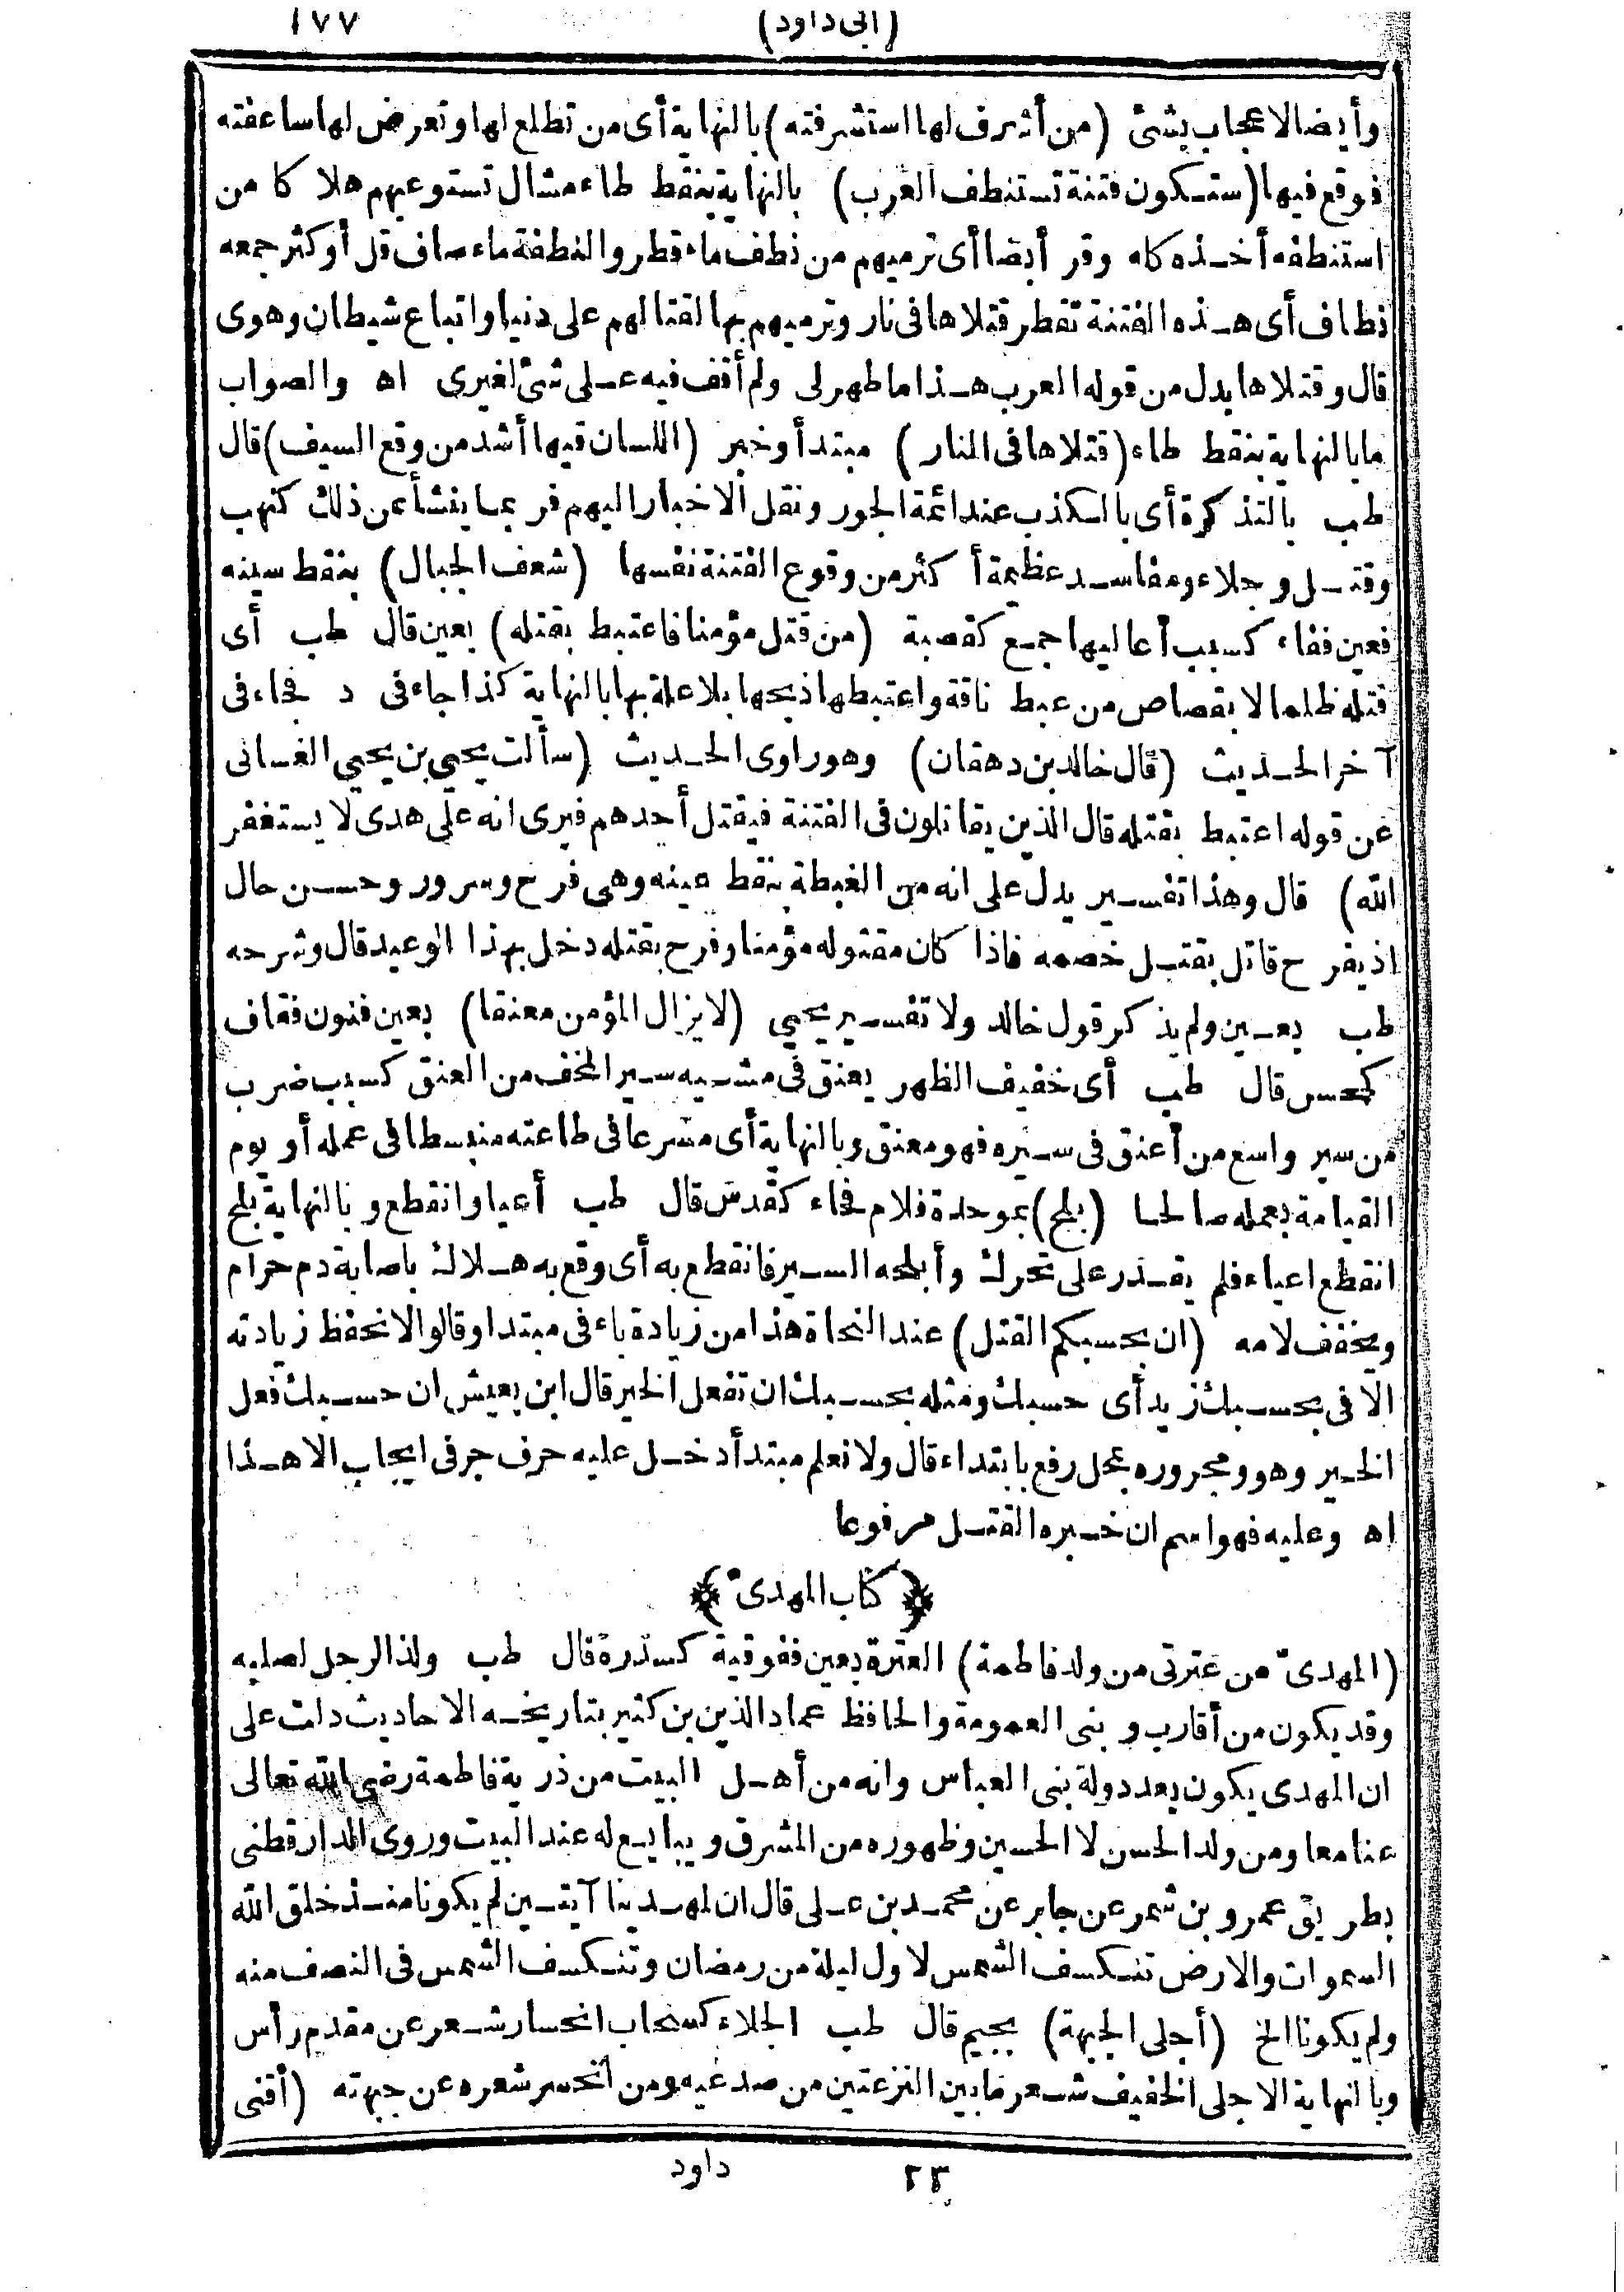 ١٧٧ (ابى داود)
وأيضا الاعجاب بشئ (من أشرف لها استشرفته) بالنهاية أى من تطلع لها وتعرض لها ساعفته
فوقع فيها (ستكون فتنة تستنطف العرب) بالنهاية بنقط طاء مشال تستوعبهم هلاكا من
استنطفه أخذه كله وقر أيضا أى ترميهم من نطف ماء قطر والنطفة ماء صاف قل أو كثر جمعه
نطاف أى هذه الفتنة تقطر قتلاها فى نار وترميهم بها لقتالهم على دنيا واتباع شيطان وهوى
قال وقتلاها بدل من قوله العرب هذا ما ظهر لى ولم أقف فيه على شئ لغيرى اه والصواب
ما بالنهاية بنقط طاء (قتلاها فى النار) مبتدأ وخبر (اللسان فيها أشد من وقع السيف) قال
طب بالتذكرة أى بالكذب عند ائمة الجور ونقل الاخبار اليهم فر بما ينشأ عن ذلك كنهب
وقتل وجلاء ومفاسد عظيمة أكثر من وقوع الفتنة نفسها (شعف الجبال) بنقط سينه
فعين ففاء كسبب أعاليها جمع كقصبة (من قتل مؤمنا فاعتبط بقتله) بعين قال طب أى
قتله ظلما لا بقصاص من عبط ناقة واعتبطها ذبحها بلا علة بها بالنهاية كذا جاء فى د فجاء فى
آخر الحديث (قال خالد بن دهقان) وهو راوى الحديث (سألت يحيى بن يحيى الغسانى
عن قوله اعتبط بقتله قال الذين يقاتلون فى الفتنة فيقتل أحدهم فيرى انه على هدى لا يستغفر
الله) قال وهذا تفسير يدل على انه من الغبطة بنقط عينه وهى فرح وسرور وحسن حال
اذ يفرح قاتل بقتل خصمه فاذا كان مقتوله مؤمنا وفرح بقتله دخل بهذا الوعيد قال وشرحه
طب بعين ولم يذكر قول خالد ولا تفسير يحيى (لا يزال المؤمن معنقا) بعين فنون فقاف
كمحسن قال طب أى خفيف الظهر يعنق فى مشيه سير المخف من العنق كسبب ضرب
من سير واسع من أعنق فى سيره فهو معنق وبالنهاية أى مسرعا فى طاعته منبسطا فى عمله أو يوم
القيامة بعمله صالحا (بلح) بموحدة فلام فحاء كقدس قال طب أعيا وانقطع وبالنهاية بلح
انقطع اعياء فلم يقدر على تحرك وأبلحه السير فانقطع به أى وقع به هلاك باصابة دم حرام
ويخفف لامه (ان بحسبكم القتل) عند النحاة هذا من زيادة باء فى مبتدا وقالوا لا نحفظ زيادته
الا فى بحسبك زيد أى حسبك ومثله بحسبك ان تفعل الخير قال ابن يعيش ان حسبك فعل
الخير وهو ومجروره بمحل رفع بابتداء قال ولا نعلم مبتدأ دخل عليه حرف جر فى ايجاب الا هذا
اه وعليه فهو اسم ان خبره القتل مرفوعا
﴿كتاب المهدى﴾
(المهدى من عترتى من ولد فاطمة) العترة بعين ففوقية كسدرة قال طب ولد الرجل لصلبه
وقد يكون من أقارب وبنى العمومة والحافظ عماد الدين بن كثير بتاريخه الاحاديث دلت على
ان المهدى يكون بعد دولة بنى العباس وانه من أهل البيت من ذرية فاطمة رضى الله تعالى
عنا معا ومن ولد الحسن لا الحسين وظهوره من المشرق ويبايع له عند البيت وروى الدارقطنى
بطريق عمرو بن شمر عن جابر عن محمد بن على قال ان لمهدينا آيتين لم يكونا منذ خلق الله
السموات والارض تنكسف الشمس لاول ليلة من رمضان وتنكسف الشمس فى النصف منه
ولم يكونا الخ (أجلى الجبهة) بجيم قال طب الجلاء كسحاب انحسار شعر عن مقدم رأس
وبالنهاية الاجلى الخفيف شعر ما بين النزعتين من صدغيه ومن انحسر شعره عن جبهته (أقنى
٢٣ داود